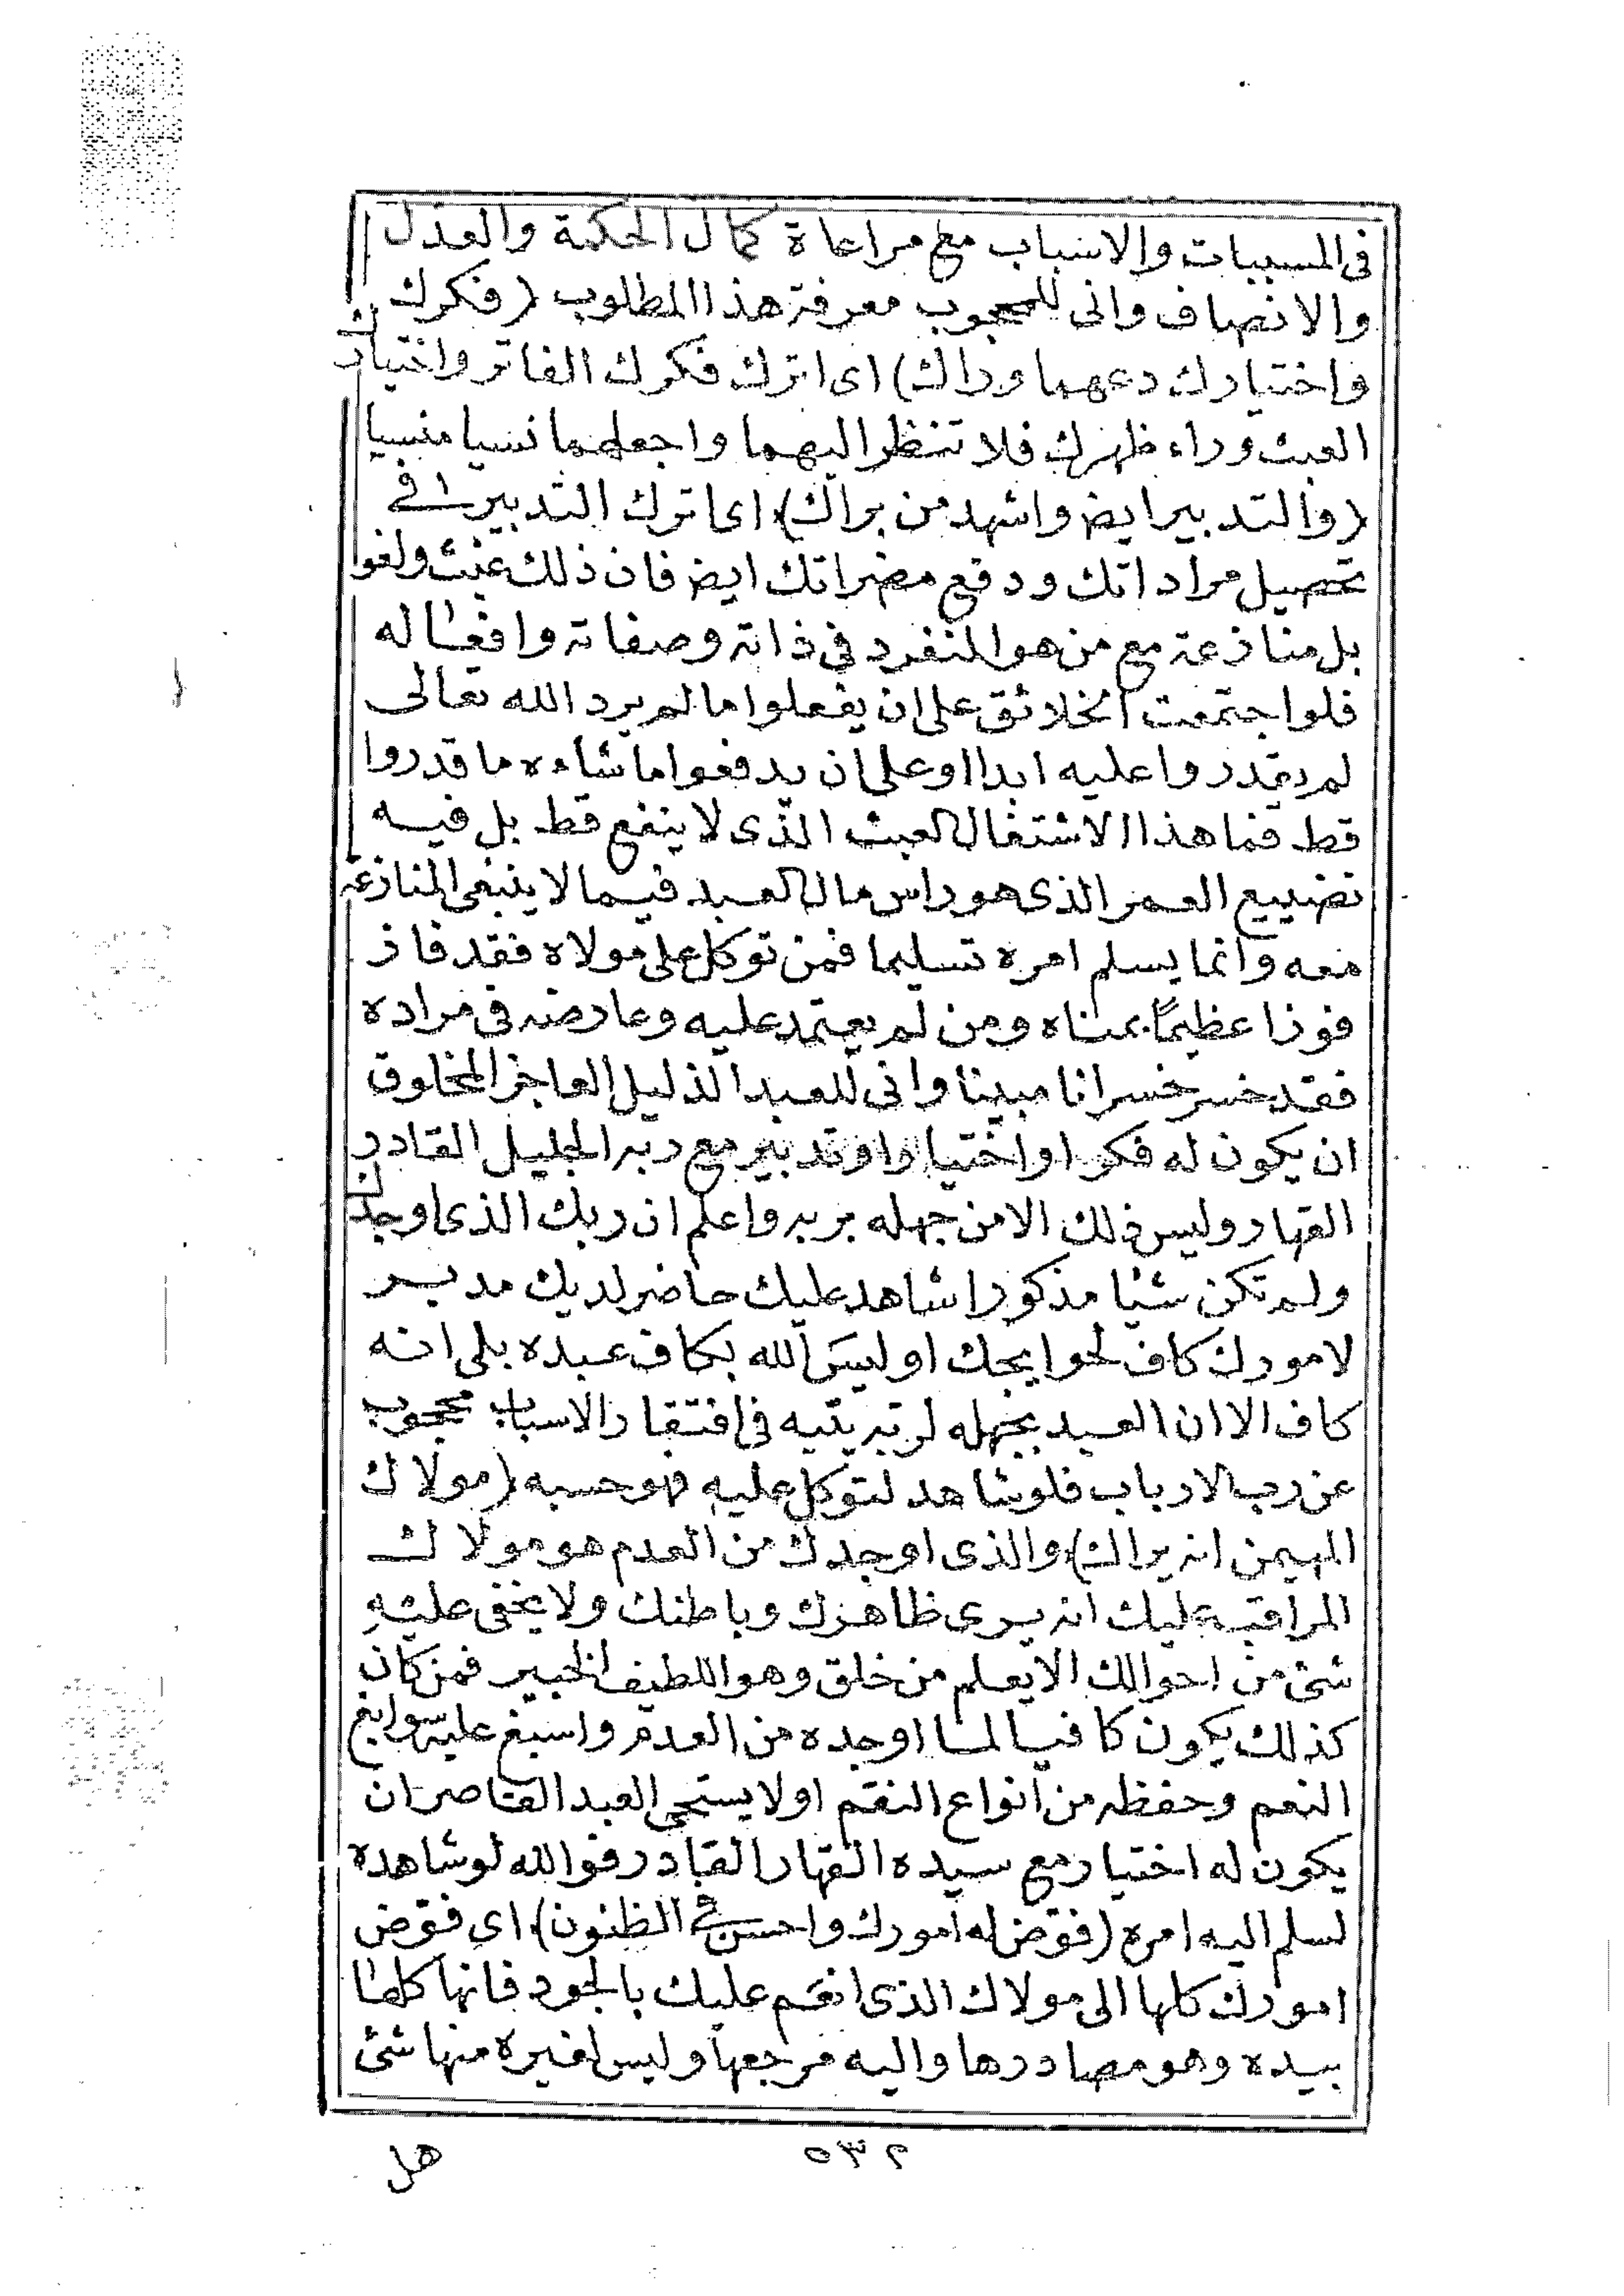 فى المسببات والاسباب مع مراعاة كمال الحكمة والعدل
والانصاف وانى للمحجوب معرفة هذا المطلوب (فكرك
واختيارك دعهما وراك) اى اترك فكرك الفاتر واختيارك
العبث وراء ظهرك فلا تنظر اليهما واجعلهما نسيا منسيا
(والتدبير ايض واشهد من براك) اى اترك التدبير فى
تحصيل مراداتك ودفع مضراتك ايض فان ذلك عبث ولغو
بل منازعة مع من هو المنفرد فى ذاته وصفاته وافعاله
فلو اجتمعت الخلائق على ان يفعلوا ما لم يرد الله تعالى
لم يقدروا عليه ابدا او على ان يدفعوا ما شاءه ما قدروا
قط فما هذا الاشتغال العبث الذى لا ينفع قط بل فيه
تضييع العمر الذى هو راس مال العبد فيما لا ينبغى المنازعة
معه وانما يسلم امره تسليما فمن توكل على مولاه فقد فاز
فوزا عظيمًا بمناه ومن لم يعتمد عليه وعارضه فى مراده
فقد خسر خسرانا مبينا وانى للعبد الذليل العاجز المخلوق
ان يكون له فكر او اختيار او تدبير مع ربه الجليل القادر
القهار وليس ذلك الا من جهله بربه واعلم ان ربك الذى اوجدك
ولم تكن شيئا مذكورا شاهد عليك حاضر لديك مدبر
لامورك كاف لحوايجك او ليسَ الله بكاف عبده بلى انه
كاف الا ان العبد بجهله لربه يتيه فى افتقار الاسباب محجوب
عن رب الارباب فلو شاهد لتوكل عليه فهو حسبه (مولاك
المهيمن انه يراك) والذى اوجدك من العدم هو مولاك
المراقب عليك انه يرى ظاهرك وباطنك ولا يخفى عليه
شئ من احوالك الا يعلم من خلق وهو اللطيف الخبير فمن كان
كذلك يكون كافيا لما اوجده من العدم واسبغ عليه سوابغ
النعم وحفظه من انواع النقم او لا يستحى العبد القاصر ان
يكون له اختيار مع سيده القهار القادر فوالله لو شاهده
لسلم اليه امره (فوّض له امورك واحسن فى الظنون) اى فوّض
امورك كلها الى مولاك الذى انعم عليك بالجود فانها كلها
بيده وهو مصادرها واليه مرجعها وليس لغيره منها شئ
هل
٥٣٢